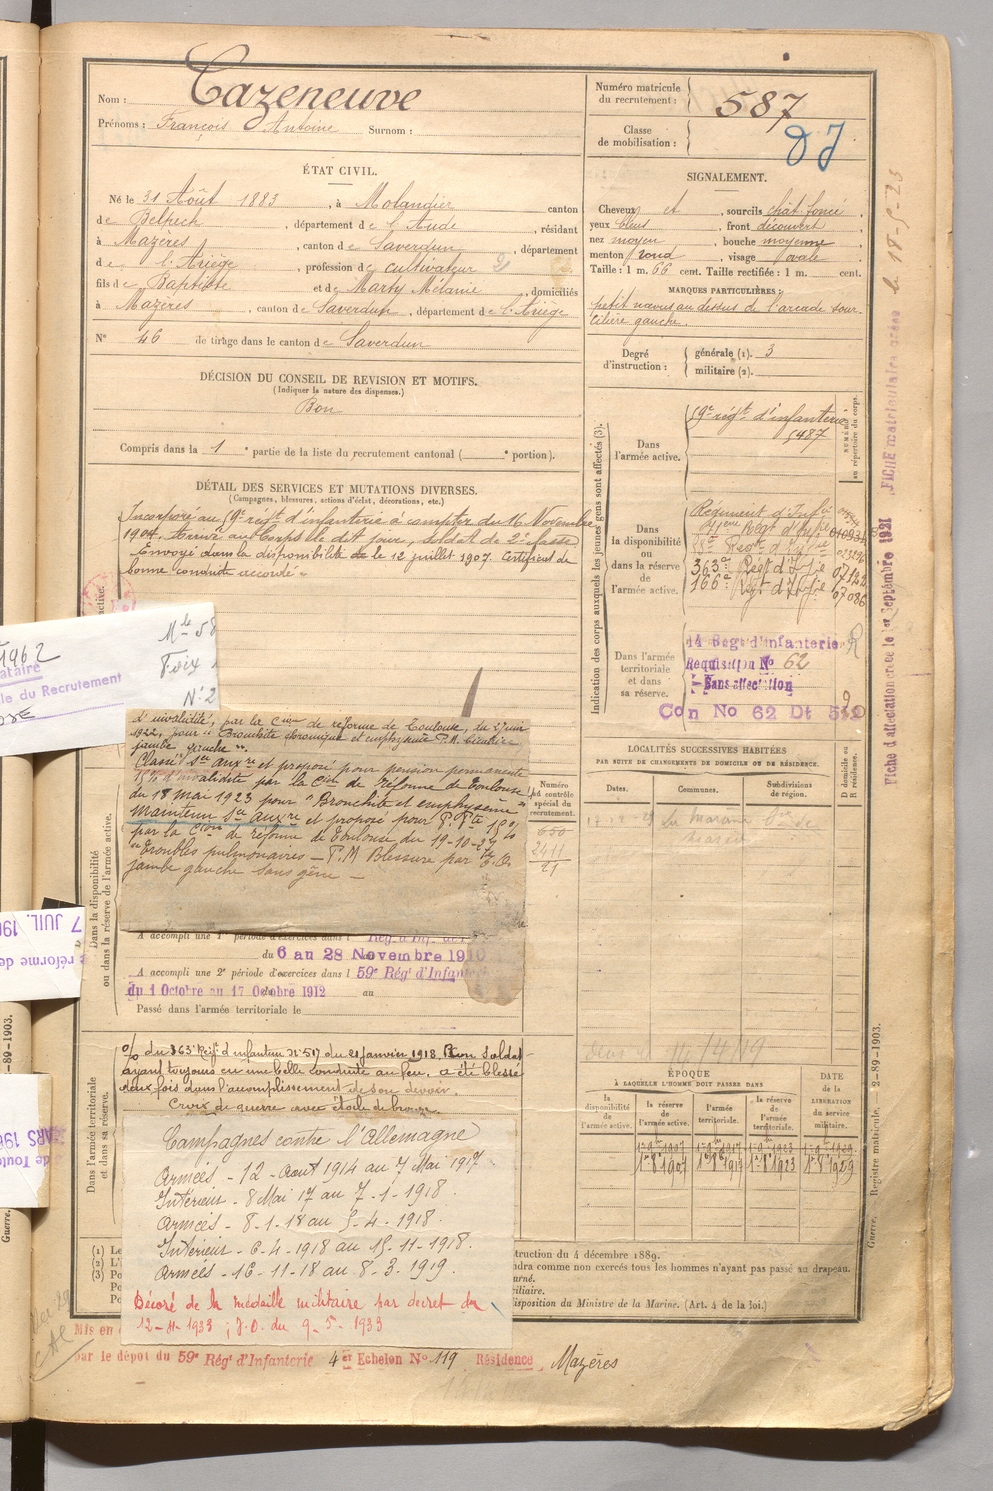 Nom : Cazeneuve
Prénoms : François Antoine Surnom :
Numéro matricule du recrutement : 587
Classe de mobilisation :
ÉTAT CIVIL.
Né le 31 Août 1883, à Molandier canton
de Belpech, département de l'Aude, résidant
à Mazères, canton de Saverdun, département
de l'Ariège, profession de cultivateur
fils de Baptiste et de Marty Mélanie, domiciliés
à Mazères, canton de Saverdun, département de l'Ariège
N° 46 de tirage dans le canton de Saverdun
DÉCISION DU CONSEIL DE REVISION ET MOTIFS.
(Indiquer la nature des dispenses.)
Bon
Compris dans la 1e partie de la liste du recrutement cantonal ( e portion).
SIGNALEMENT.
Cheveux et, sourcils chât foncé,
yeux bleus, front découvert,
nez moyen, bouche moyenne,
menton rond, visage ovale.
Taille : 1 m. 66 cent. Taille rectifiée : 1 m. cent.
MARQUES PARTICULIÈRES :
petit nævus au dessus de l'arcade sour-
cilière gauche.
Degré d'instruction : générale (1). 3
militaire (2).
DÉTAIL DES SERVICES ET MUTATIONS DIVERSES.
(Campagnes, blessures, actions d'éclat, décorations, etc.)
Incorporé au 59e régt d'infanterie à compter du 16 Novembre
1904. Arrivé au Corps le dit jour, soldat de 2e classe
Envoyé dans la disponibilité le 12 juillet 1907. Certificat de
bonne conduite accordé.
Indication des corps auxquels les jeunes gens sont affectés (3).
Dans l'armée active. 59e régt d'infanterie
5487
NUMÉRO au répertoire du corps.
Dans la disponibilité ou dans la réserve de l'armée active.
Régiment d'Infie
363e Régt d'Ifie 07122
166e Régt d'Ifie 07086
Dans l'armée territoriale et dans sa réserve.
14 Regt d'infanterie
Requisition N° 62
Sans affectation
Con No 62 Dt
FICHE matriculaire créée le 18-5-23
Fiche d'affectation créée le 1er Septembre 1921
1962
le du Recrutement
Mle 58
Foix
N: 2
d'invalidité, par la Cion de réforme de Toulouse, du 2 juin
1922, pour "Bronchite chronique et emphysème P.M. Cicatrice
jambe gauche".
Classé Sce auxre et proposé pour pension permanente
15% d'invalidité par la Cion de réforme de Toulouse
du 18 mai 1923 pour "Bronchite et emphysème"
Maintenu Sce auxre et proposé pour P. Pte 15%
par la Cion de réforme de Toulouse du 19-10-27
"Troubles pulmonaires – P.M Blessure par
jambe gauche sans gêne –
Dans la disponibilité ou dans la réserve de l'armée active.
Numéro au contrôle spécial du recrutement.
650
2411
21
LOCALITÉS SUCCESSIVES HABITÉES
PAR SUITE DE CHANGEMENTS DE DOMICILE OU DE RÉSIDENCE.
Dates. Communes. Subdivisions de région. D domicile ou R résidence.
A accompli une 1e période d'exercices dans l
du 6 au 28 Novembre 1910
A accompli une 2e période d'exercices dans l 59e Régt d'Infanterie
du 1 Octobre au 17 Octobre 1912 au
Passé dans l'armée territoriale le
7 JUIL. 196
Dans l'armée territoriale et dans sa réserve.
% du 363e Régt d'infanterie N° 517 du 21 janvier 1918. Bon Soldat
ayant toujours eu une belle conduite au feu, a été blessé
deux fois dans l'accomplissement de son devoir.
Croix de guerre avec étoile de bronze.
Campagnes contre l'Allemagne
Armées – 12 – Aout 1914 au 7 Mai 1917
Intérieur – 8 Mai 17 au 7 – 1 – 1918.
Armées – 8 – 1 – 18 au 5 – 4 – 1918.
Intérieur – 6 – 4 – 1918 au 15 – 11 – 1918.
Armées – 16 – 11 – 18 au 8 – 3. 1919.
Décoré de la médaille militaire par décret du
12-4-1933 ; J.O. du 9-5-1933
ÉPOQUE
À LAQUELLE L'HOMME DOIT PASSER DANS
la disponibilité de l'armée active. la réserve de l'armée active. l'armée territoriale. la réserve de l'armée territoriale.
DATE de la LIBÉRATION du service militaire.
struction du 4 décembre 1889.
ndra comme non exercés tous les hommes n'ayant pas passé au drapeau.
urné.
iliaire.
isposition du Ministre de la Marine. (Art. 4 de la loi.)
Mis en
par le dépot du 59e Régt d'Infanterie 4er Echelon N° 119 Résidence Mazères
Guerre. Registre matricule. — 2-89-1903.